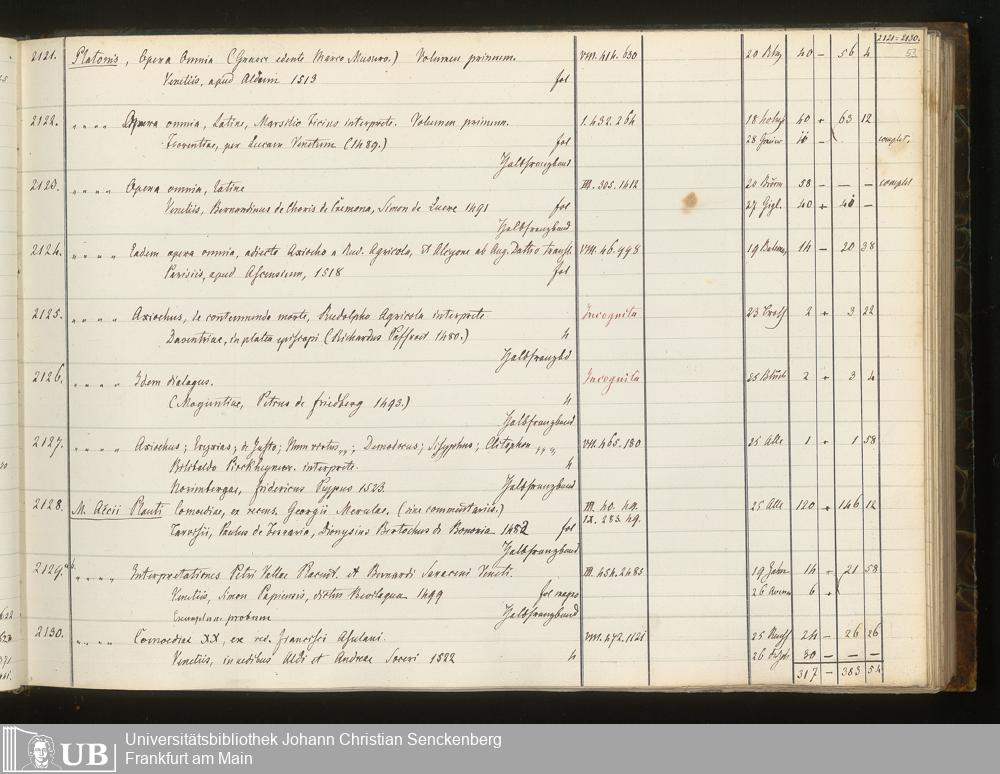 2121=2130.
53
2121. Platonis, Opera Omnia (Graece edente Marco Musuro.) Volumen primum. VIII. 414. 630 40 - 56 4
Venetiis, apud Aldum 1513 fol
2122. " " " " Opera omnia, Latine, Marsilio Ficino interprete. Volumen primum. I. 432. 264 40 + 63 12
Florentiae, per Lucam Venetum (1489.) fol 28 10 - complet.
Halbfranzband
2123. " " " " Opera omnia, Latine III. 305. 1412 20 58 - - - complet
Venetiis, Bernardinus de Choris de Cremona, Simon de Luere 1491 fol 27 Gigl. 40 + 40 -
Halbfranzband
2124. " " " " Eadem opera omnia, adiecto Axiocho a Rud. Agricola, et Alcyone ab Aug. Dattio transl. VIII. 46. 998 19 14 - 20 38
Parisiis, apud Ascensium, 1518 fol
2125. " " " " Axiochus, de contemnenda morte, Rudolpho Agricola interprete Incognita 23 2 + 3 22
Daventriae, in platea episcopi (Richardus Paffroet 1480.) 4
Halbfranzbd
2126. " " " " Idem dialogus. Incognita 25 2 + 3 4
(Maguntiae, Petrus de Friedberg 1493.) 4
Halbfranzband
2127. " " " " Axiochus; Eryxias; de Justo; Num virtus „; Demodocus; Sisyphus; Clitophon „ „, VII. 465. 180 25 Alle 1 + 1 58
Bilibaldo Pirckheymer. interprete. 4
Norimbergae, Fridericus Peypus 1523. Halbfranzband
2128. M. Accii Plauti Comoediae, ex recens. Georgii Merulae. (sine commentariis.) III. 40. 49. 25 Alle 120 + 146 12
IX. 283. 49.
Tarvisii, Paulus de Ferraria, Dionysius Bertochus de Bononia 1482 fol
Halbfranzband
2129. " " " " Interpretationes Petri Vallae Placent. et Bernardi Saraceni Veneti. III. 454. 2485 19 Jahn 14 + 21 58
Venetiis, Simon Papiensis, dictus Bevilaqua 1499 fol 26 6 +
Exemplum probum Halbfranzband
2130. " " " " Comoediae XX, ex rec. Francisci Asulani. VIII. 472. 1121 25 24 - 26 26
Venetiis, in aedibus Aldi et Andreae Soceri 1522 4 26 30 - - -
317 - 383 54
UB
Universitätsbibliothek Johann Christian Senckenberg
Frankfurt am Main